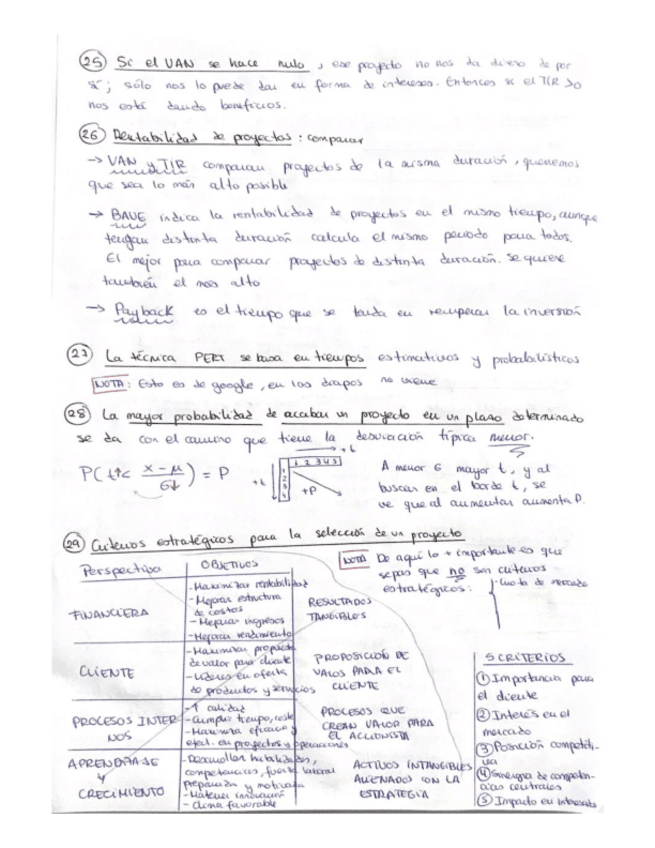 25 Si el VAN se hace nulo, ese proyecto no nos da dinero de por
sí; sólo nos lo puede dar en forma de intereses. Entonces si el TIR >0
nos está dando beneficios.
26 Rentabilidad de proyectos: comparar
→ VAN y TIR comparan proyectos de la misma duración, queremos
que sea lo más alto posible
→ BAUE indica la rentabilidad de proyectos en el mismo tiempo, aunque
tengan distinta duración calcula el mismo periodo para todos.
El mejor para comparar proyectos de distinta duración. Se quiere
también el más alto
→ Payback es el tiempo que se tarda en recuperar la inversión
27 La técnica PERT se basa en tiempos estimativos y probabilísticos
NOTA: Esto es de google, en las diapos no viene
28 La mayor probabilidad de acabar un proyecto en un plazo determinado
se da con el camino que tiene la desviación típica menor.
P(t↑< x-μ / σ↓) = P
+t
1 2 3 4 5
+t
1
2
3
+P
A menor σ mayor t, y al
buscar en el borde t, se
ve que al aumentar aumenta P.
29 Criterios estratégicos para la selección de un proyecto
NOTA De aquí lo + importante es que
sepas que no son criterios
estratégicos:
· Cuota de mercado
Perspectiva OBJETIVOS
FINANCIERA
- Maximizar rentabilidad
- Mejorar estructura
de costos
- Mejorar ingresos
- Mejorar rendimiento
RESULTADOS
TANGIBLES
CLIENTE
- Maximizar propuesta
de valor para cliente
- Líderes en oferta
de productos y servicios
PROPOSICIÓN DE
VALOR PARA EL
CLIENTE
PROCESOS INTER
NOS
- ↑ calidad
- Cumplir tiempo, coste
- Maximiza eficacia y
efect. en proyectos y operaciones
PROCESOS QUE
CREAN VALOR PARA
EL ACCIONISTA
APRENDIZAJE
Y
CRECIMIENTO
- Desarrollar habilidades,
competencias, fuerza laboral
preparada y motivada
- Mantener innovación
- Clima favorable
ACTIVOS INTANGIBLES
ALIENADOS CON LA
ESTRATEGIA
5 CRITERIOS
1 Importancia para
el cliente
2 Interés en el
mercado
3 Posición competiti-
va
4 Sinergia de competen-
cias centrales
5 Impacto en interesados